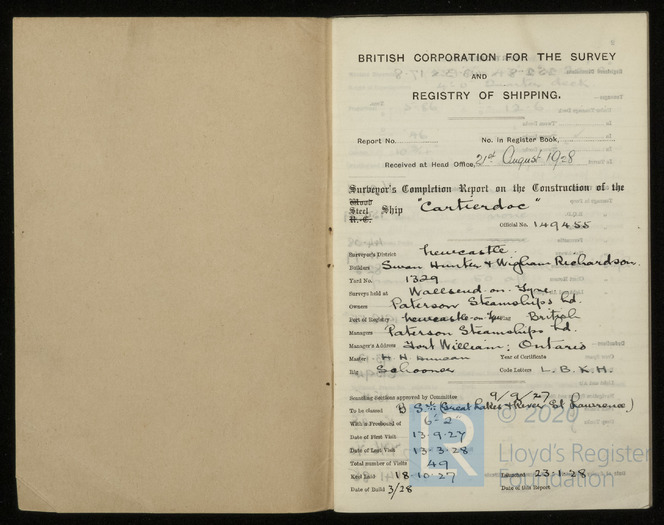 BRITISH CORPORATION FOR THE SURVEY
AND
REGISTRY OF SHIPPING.
Report No. No. in Register Book,
Received at Head Office, 21st August 1928
Surveyor's Completion Report on the Construction of the
Wood
Steel Ship "Cartierdoc"
Official No. 149455
Surveyor's District Newcastle.
Builders Swan Hunter & Wigham Richardson.
Yard No. 1329
Surveys held at Wallsend-on-Tyne
Owners Paterson Steamships Ld.
Port of Registry Newcastle-on-Tyne British
Managers Paterson Steamships Ld.
Manager's Address Fort William; Ontario
Master H. N. Duncan Year of Certificate
Rig Schooner Code Letters L.B.K.H.
Scantling Sections approved by Committee 9/9/27
To be classed B.S.* (Great Lakes & River St Lawrence)
With a Freeboard of 6'-2"
Date of First Visit 13-9-27
Date of Last Visit 13-3-28
Total number of Visits 49
Keel Laid 18-10-27 Launched 23-1-28
Date of Build 3/28 Date of this Report
© 2020
LR
Lloyd's Register
Foundation